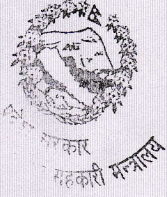 नेपाल सरकार
सहकारी मन्त्रालय